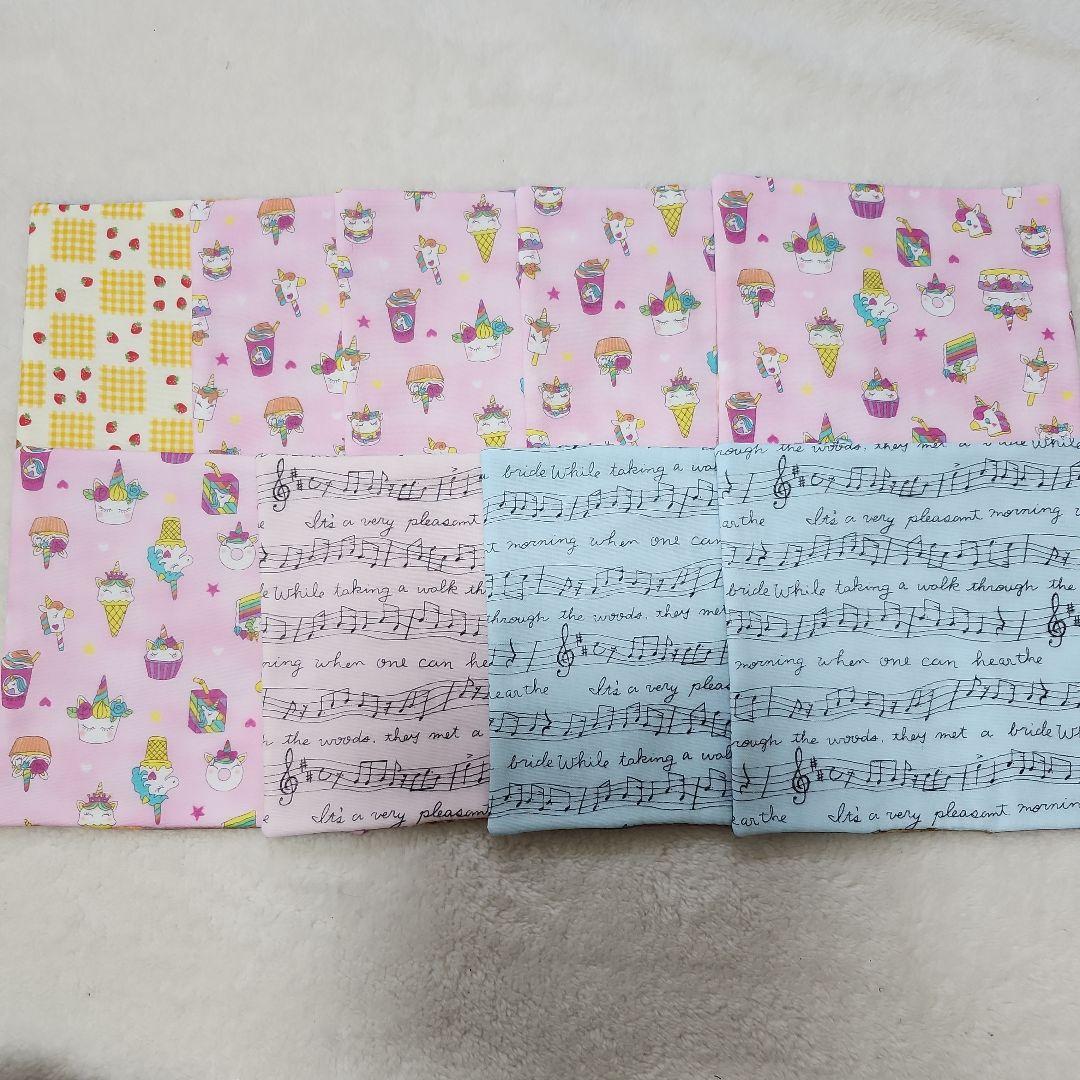 It's a very pleasant
e While taking a walk th
ning when one can he
the woods. they met a
It's a very pleasant
bride While taking a wal
t morning when one can
hrough the woods. they met
earthe It's a very pleas
bride While taking a wal
rough the woods. they met a bride While
ar the It's a very pleasant morning
bride While taking a walk through the
morning when one can hear the
rough the woods. they met a bride Whil
ear the It's a very pleasant morning